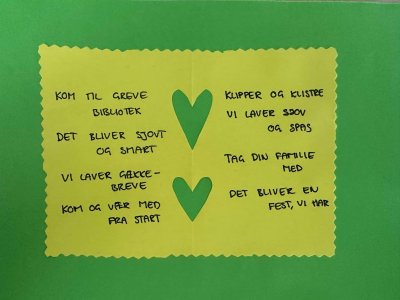 KOM TIL GREVE
BIBLIOTEK
DET BLIVER SJOVT
OG SMART
VI LAVER GÆKKE-
BREVE
KOM OG VÆR MED
FRA START
KLIPPER OG KLISTRE
VI LAVER SJOV
OG SPAS
TAG DIN FAMILIE
MED
DET BLIVER EN
FEST, VI HAR